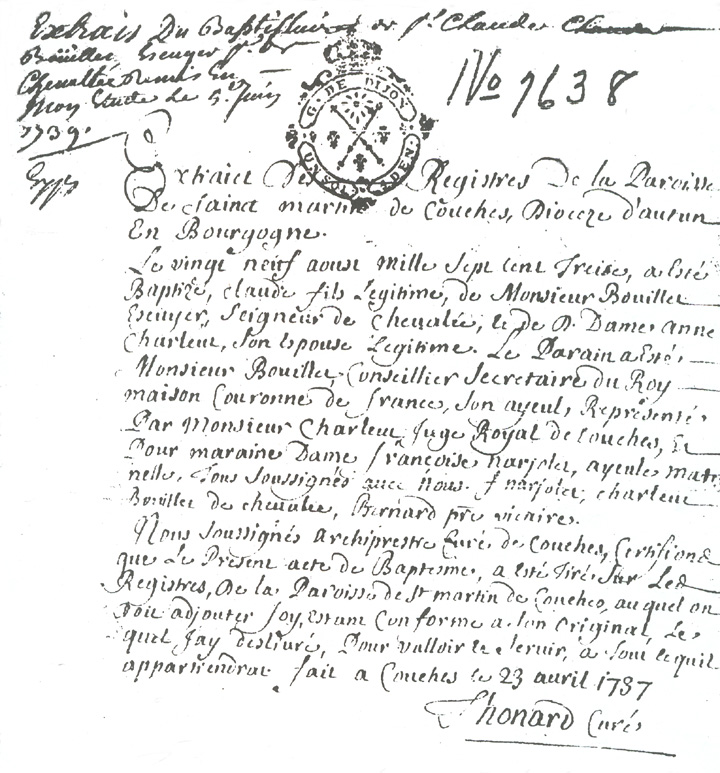 Extrais Du Baptistaire de Sr. Claude Claude
Boüillet Escuyer Sr. De
Chevallée Remis En
Mon Etude Le 5e. Juin
1739.
No 1638
G. DE DIJON
UN SOL DEN.
Extraict Des Registres De la Paroisse
De Sainct martin de Couches, Dioceze d'autun
En Bourgogne.
Le vingt neuf aoust mille Sept Cent Treise, a Esté
Baptizé, claude fils Legitime, de Monsieur Bouillet
Escuyer, Seigneur de Chevalée, et de D. Dame, anne
Charleut, Son Epouse Legitime. Le Parain a Esté
Monsieur Bouillet, Conseillier Secretaire du Roy
maison Couronne de france, Son ayeul, Représenté
Par Monsieur Charleut Juge Royal de Couches, Et
Pour maraine Dame françoise narjolet, ayeule mater
nelle, Tous Soussignés avec Nous. f narjolet, charleut
Bouillet de chevalée, Bernard ptre vicaire.
Nous Soussignés archiprestre Curé de Couches, Certifions
que Le Present acte de Baptesme, a Esté Tiré Sur Les
Registres, De la Paroisse de St martin de Couches, auquel on
Doit adjouter foy, Estant Conforme a Son Original, Le
quel Jay deslivré, Pour valloir et Servir, a Tout ce quil
appartiendrat fait a Couches le 23 avril 1737
Thonard Curé